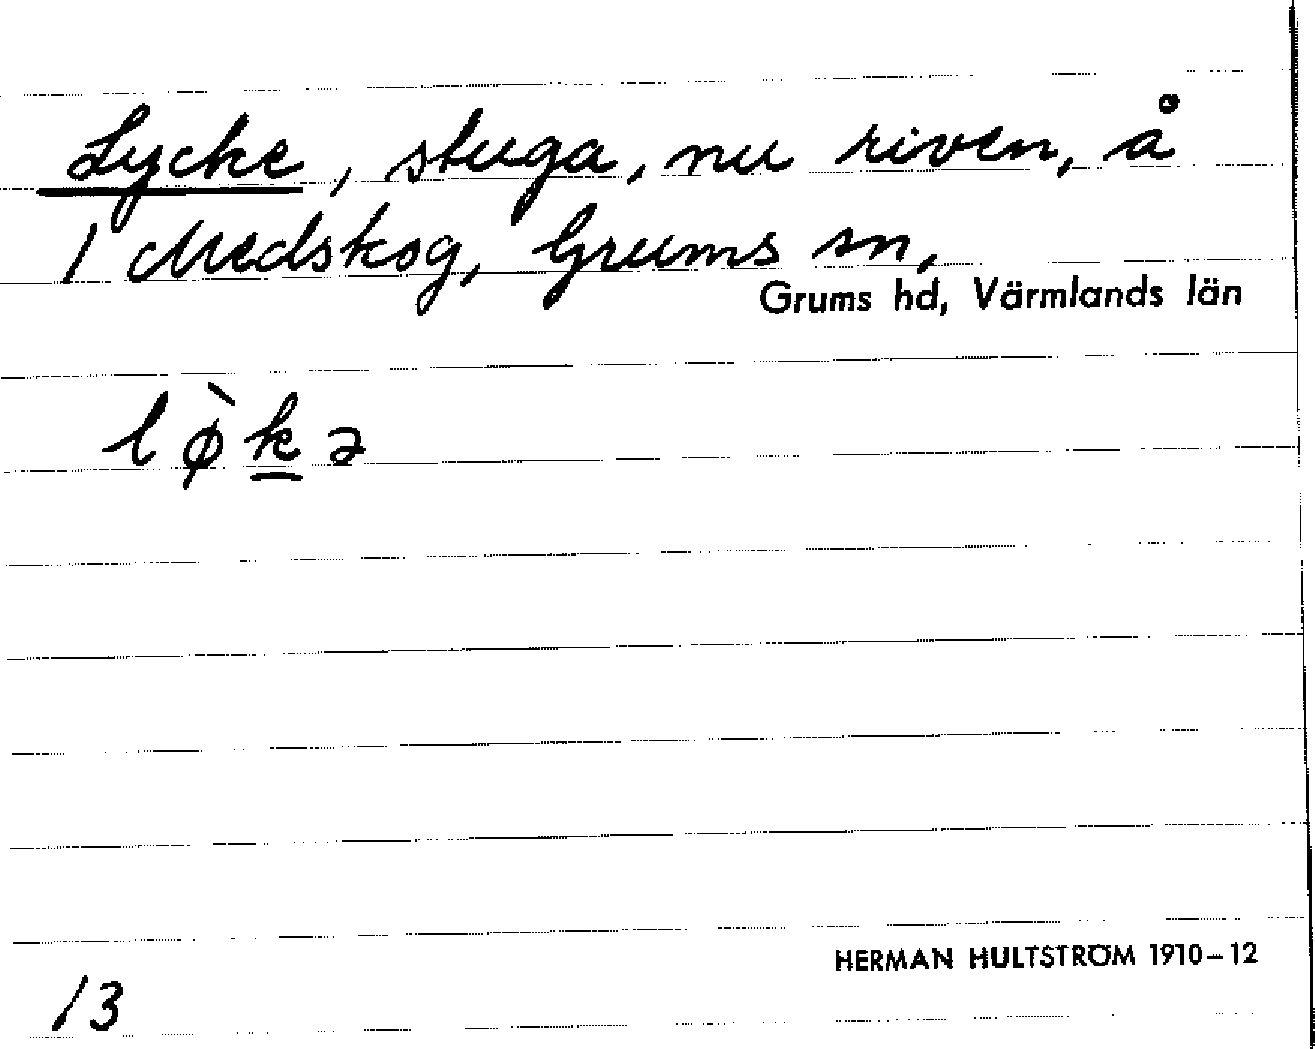 Lycke, stuga, nu riven, å
1 Medskog, Grums sn,
Grums hd, Värmlands län
lø̀k̲ə
HERMAN HULTSTRÖM 1910–12
13